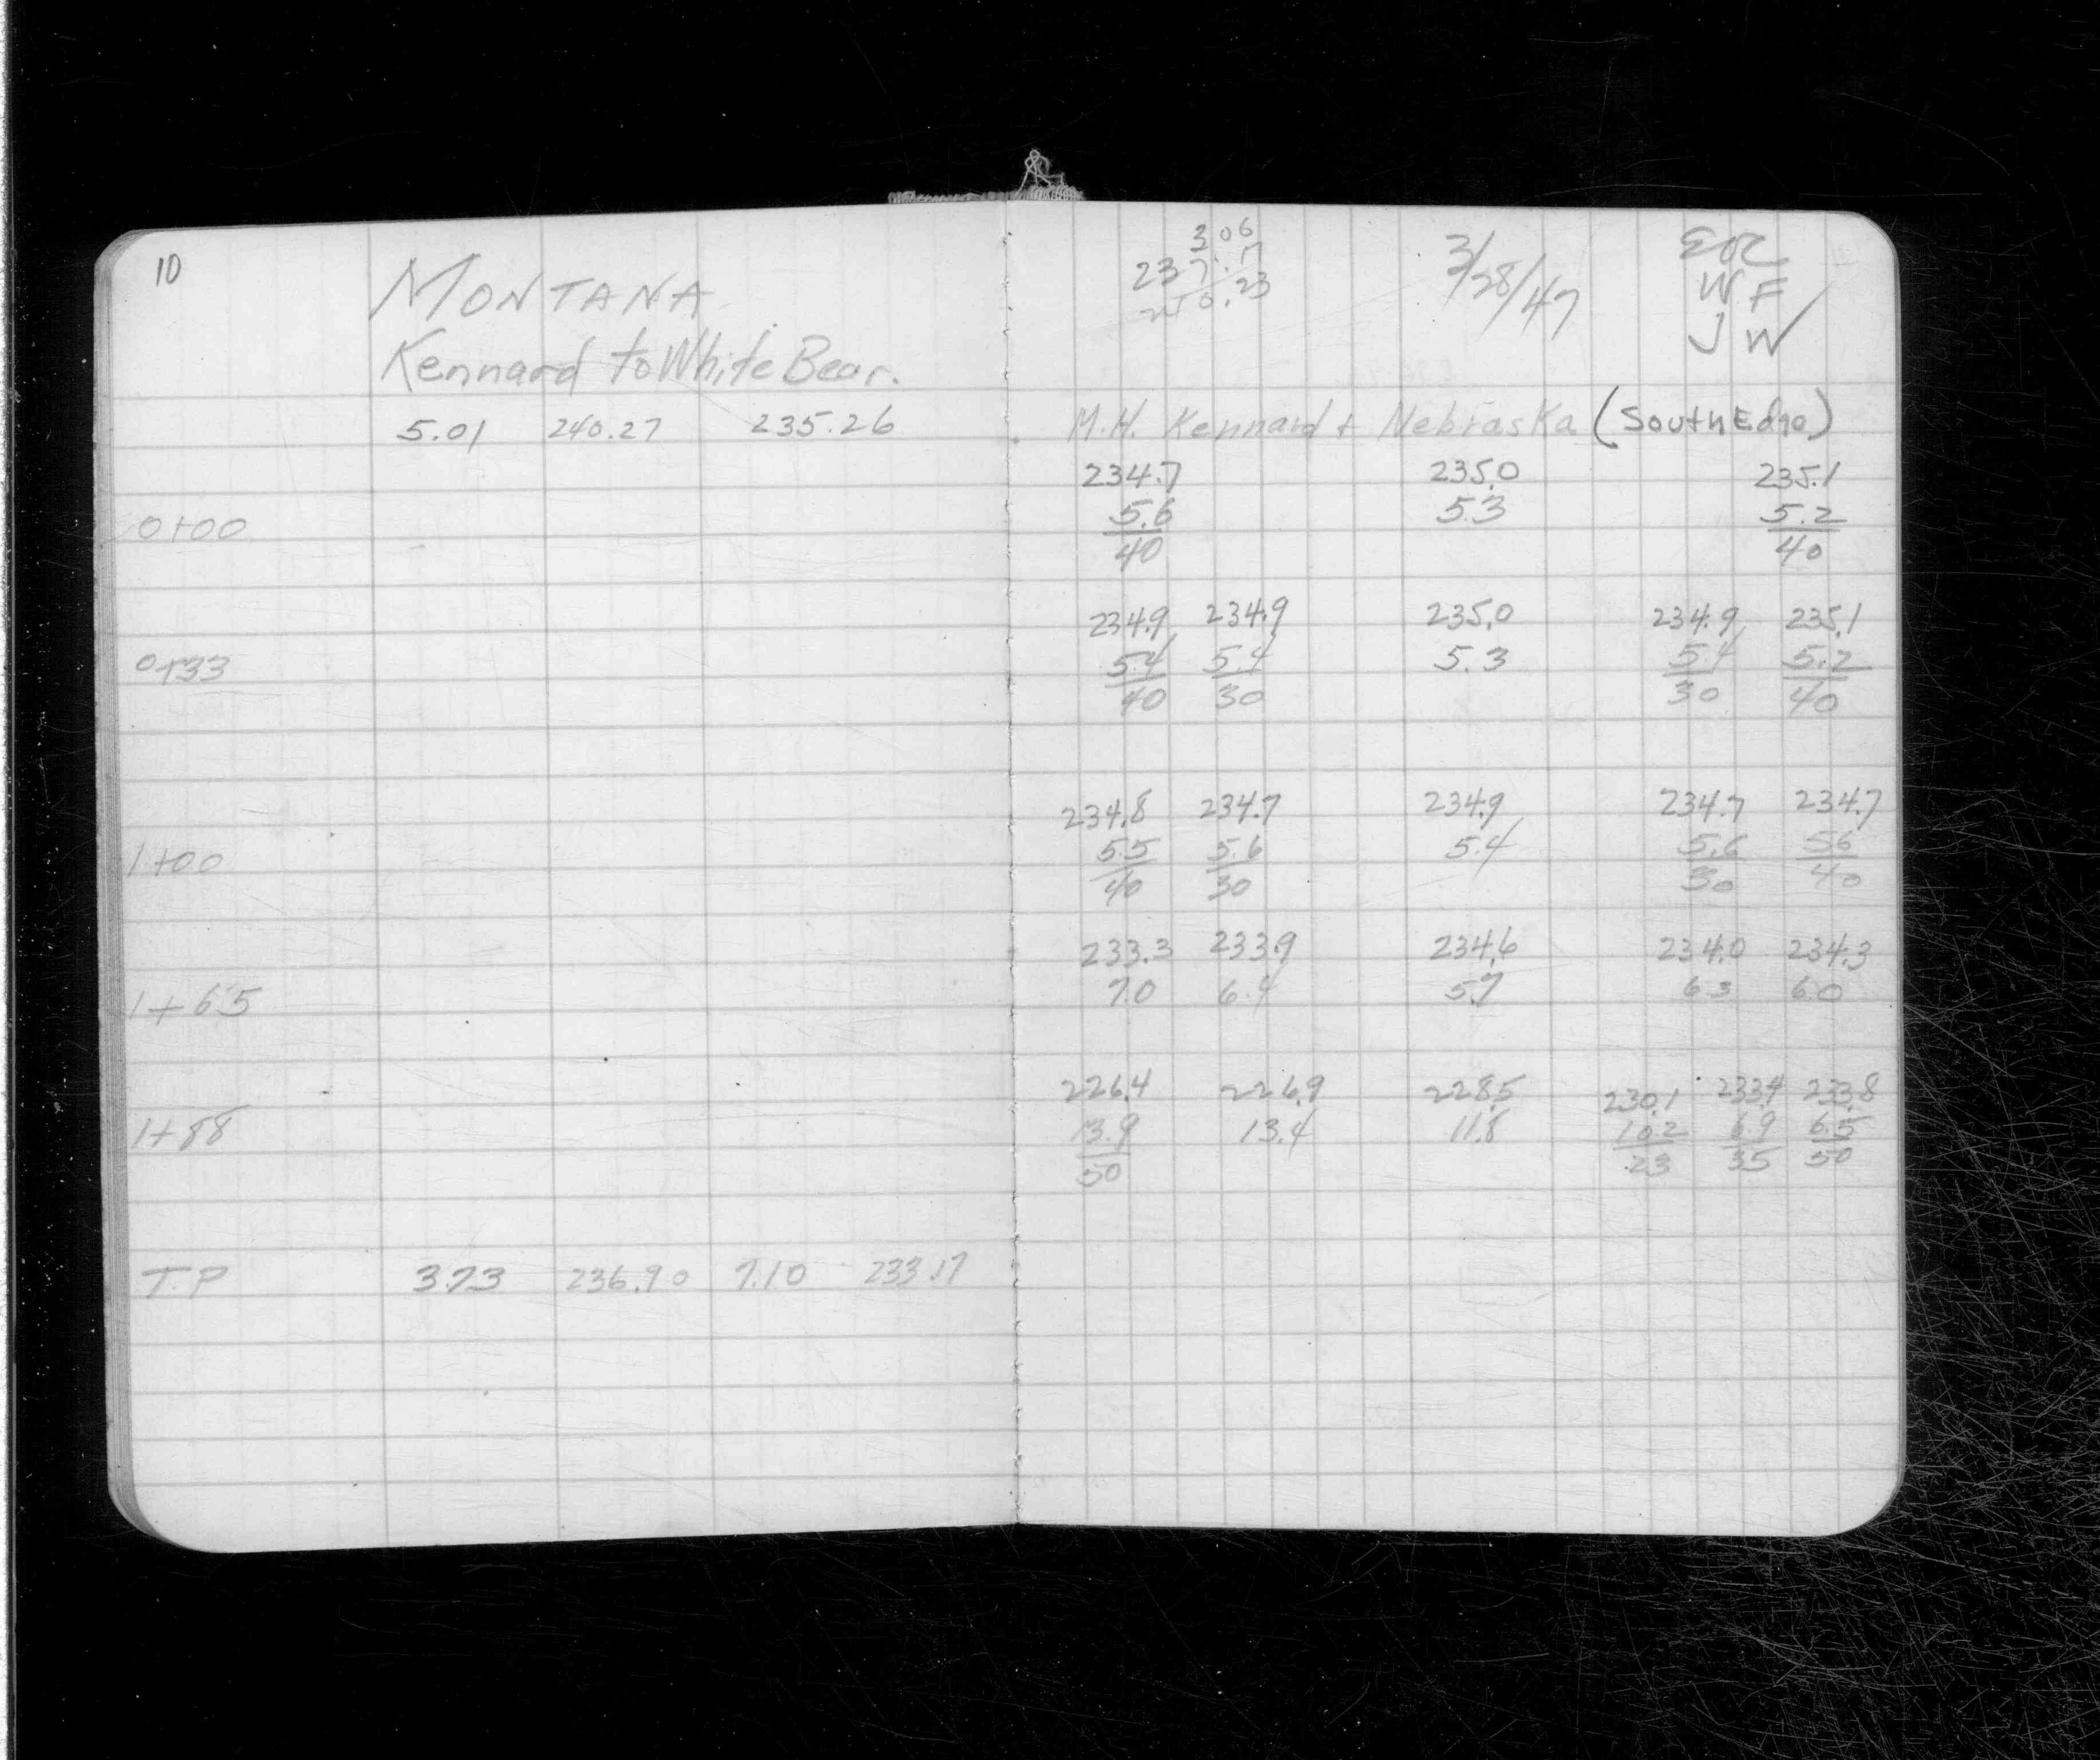 10
MONTANA
Kennard to White Bear.
5.01 240.27 235.26
0+00
0+33
1+00
1+65
1+88
T.P 3.73 236.90 7.10 233.17
306
237.17
3/28/47
EOC
WF
JW
M.H. Kennard + Nebraska (South Edge)
234.7 235.0 235.1
5.6 5.3 5.2
40 40
234.9 234.9 235.0 234.9 235.1
5.4 5.4 5.3 5.4 5.2
40 30 30 40
234.8 234.7 234.9 234.7 234.7
5.5 5.6 5.4 5.6 5.6
40 30 30 40
233.3 233.9 234.6 234.0 234.3
7.0 6.4 5.7 6.3 6.0
226.4 226.9 228.5 230.1 233.4 233.8
13.9 13.4 11.8 10.2 6.9 6.5
50 23 35 50